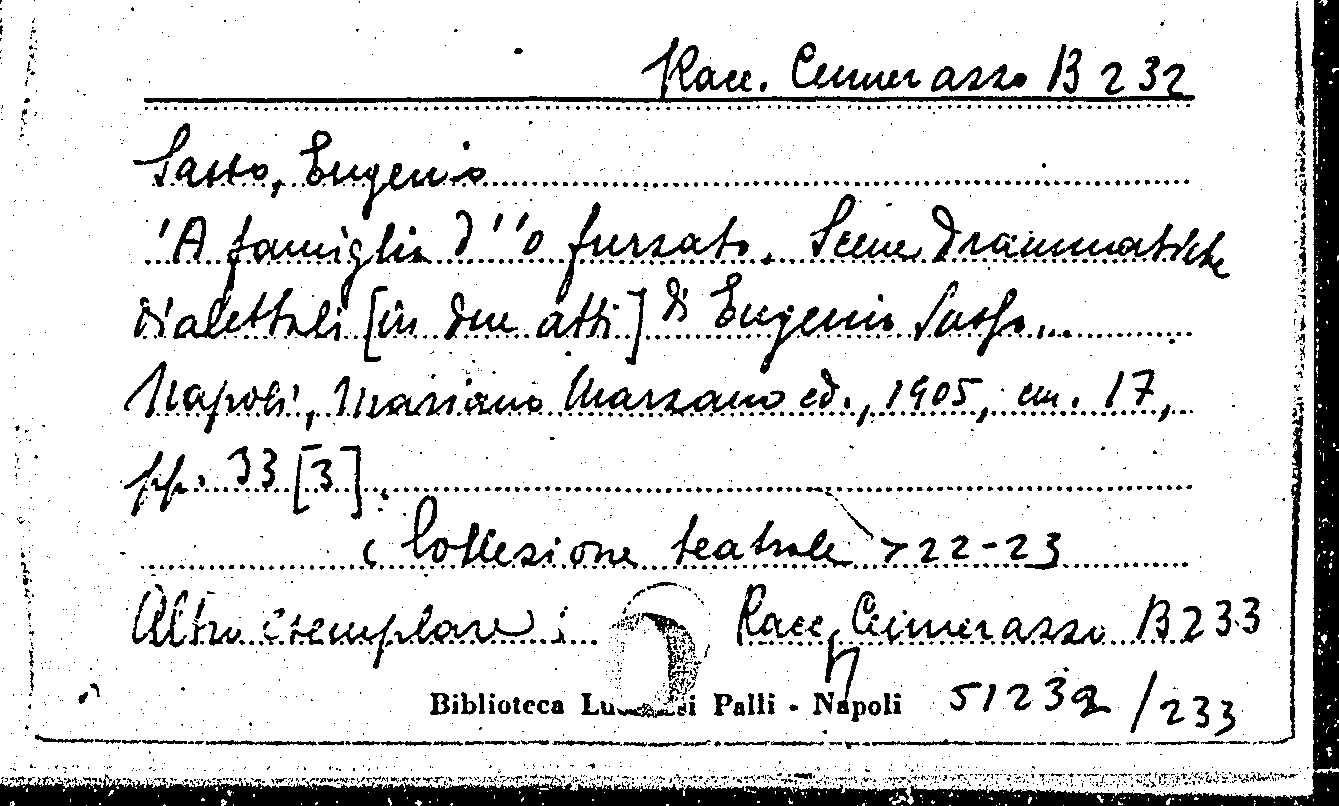 Racc. Cimmerazzo B 232
Sasso, Eugenio
'A famiglia d' 'o furzato. Scene drammatiche
dialettali [in due atti] di Eugenio Sasso...
Napoli, Mariano Marzano ed., 1905, cm. 17,
pp. 33 [3].
( Collezione teatrale > 22-23
Altro esemplare : Racc. Cimmerazzo B 233
Biblioteca Lucchesi Palli - Napoli 51232 / 233